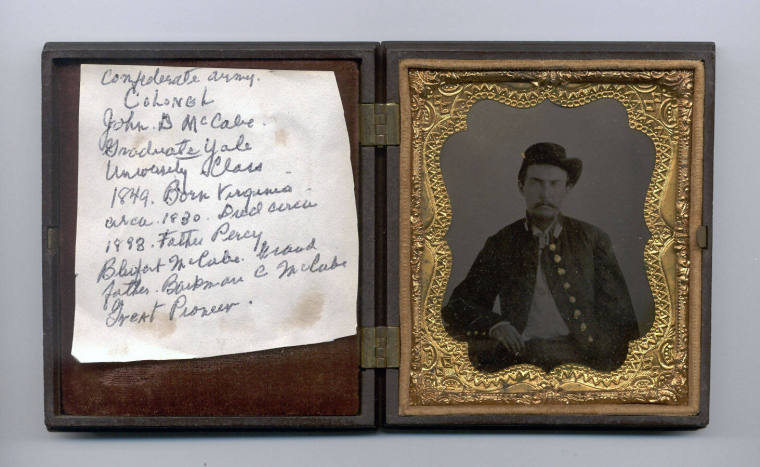 Confederate army.
Colonel
John. B McCabe.
Graduate Yale
University Class
1849. Born Virginia
circa. 1830. Died circa
1898. Father Percy
McCabe. Grand
father. C McCabe
Great Pioneer.